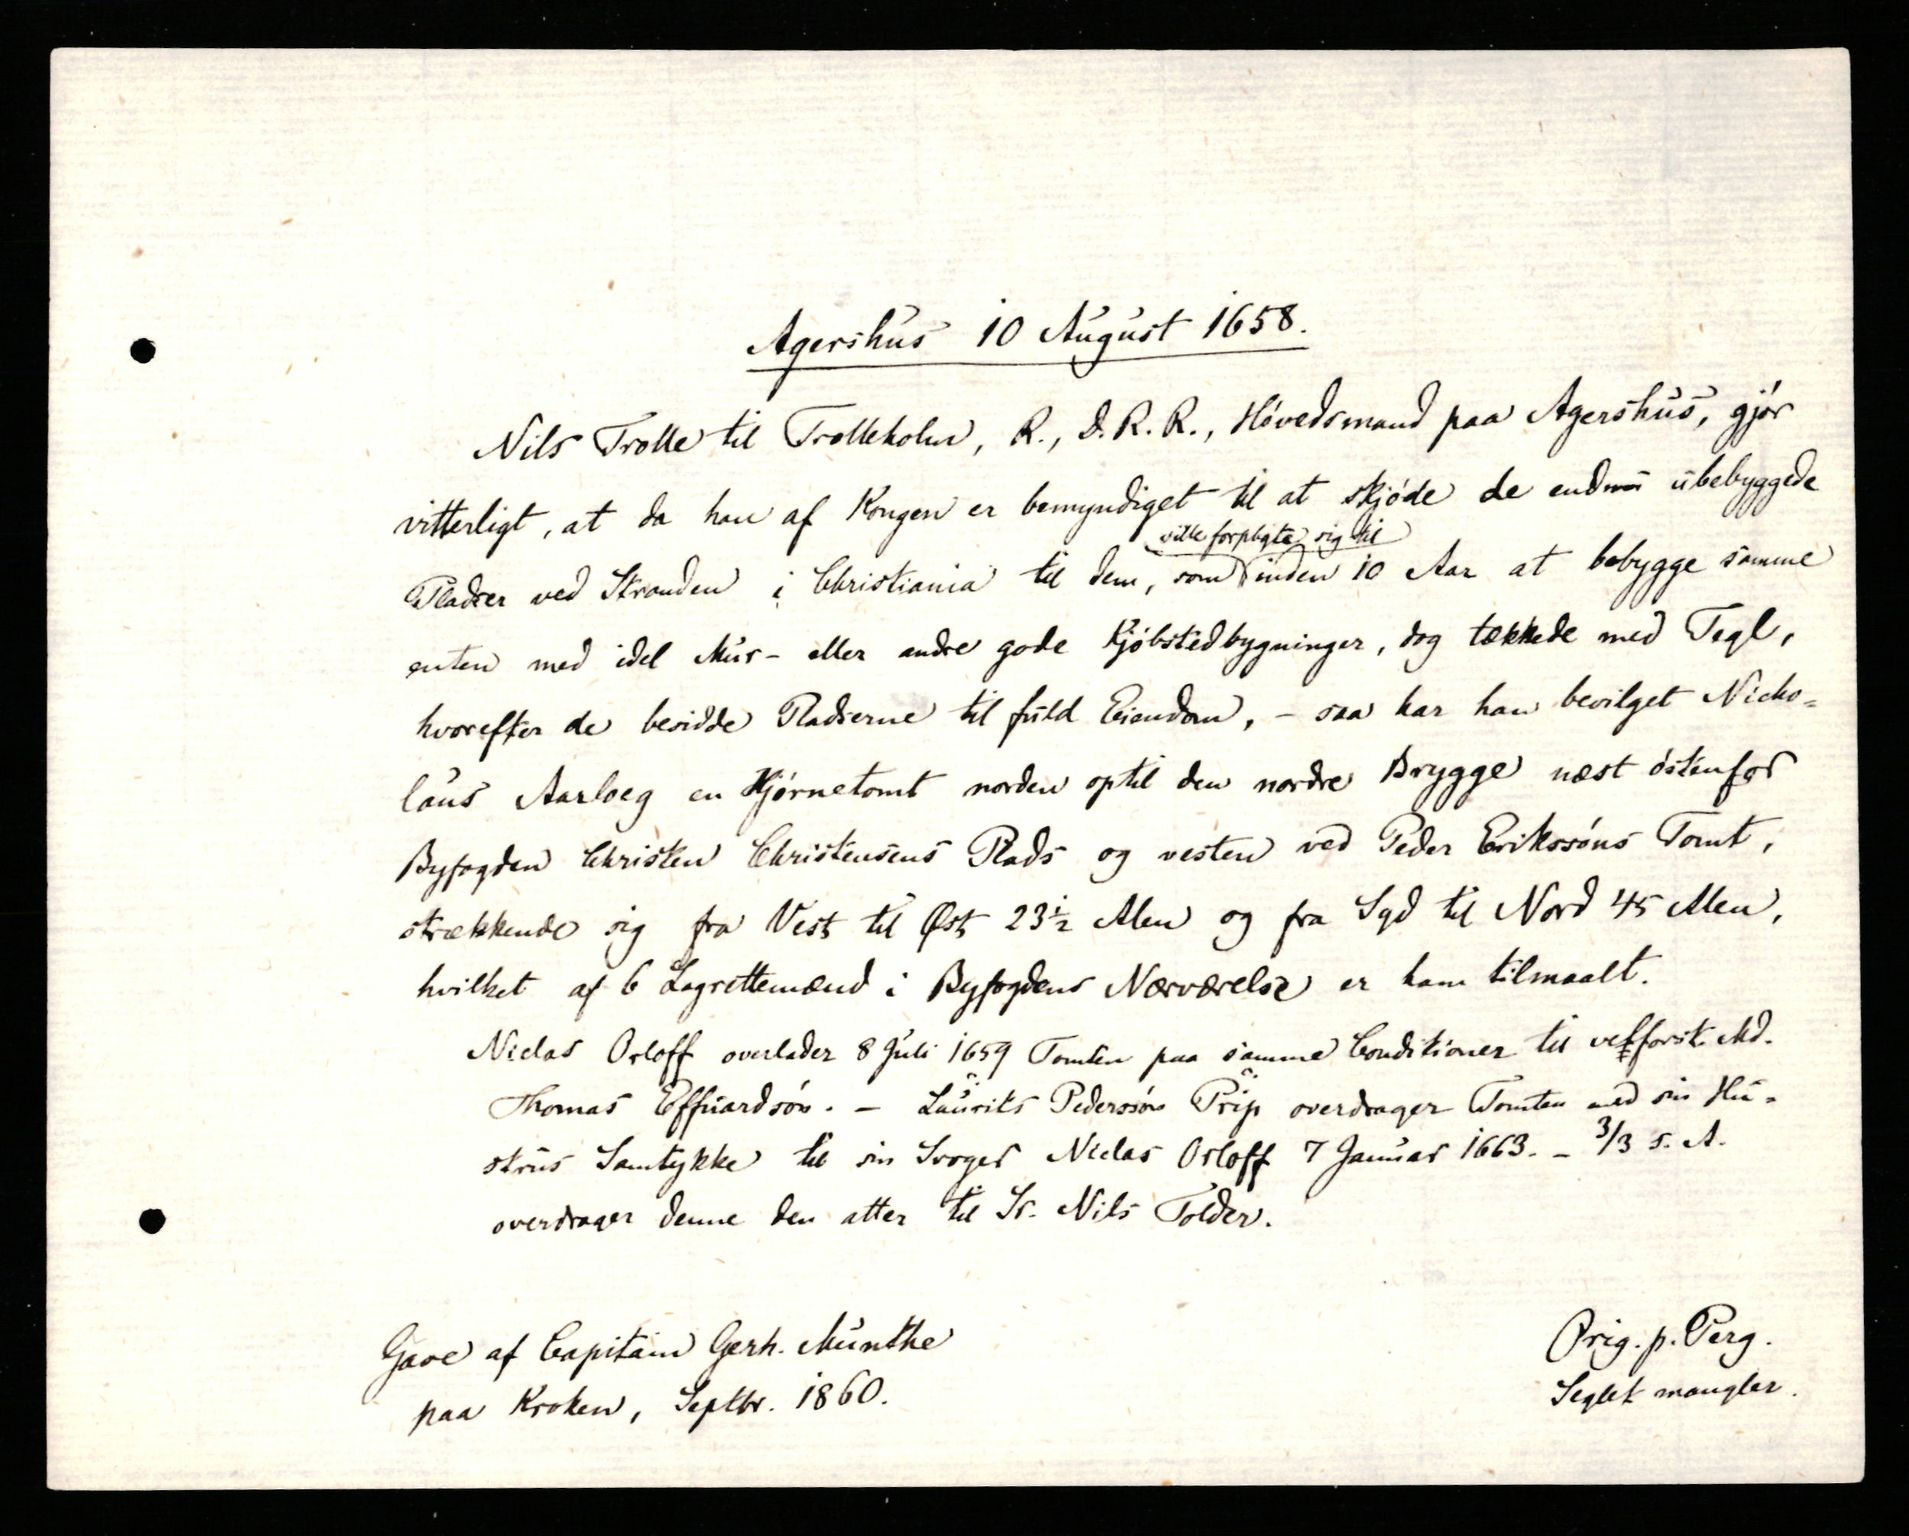 Agershus 10 August 1658.
Nils Trolle til Trolleholm, R., D. R. R., Hövedsmand paa Agershus, gjör
vitterligt, at da han af Kongen er bemyndiget til at skjöde de endnu ubebyggede
Pladser ved Stranden i Christiania til dem, som ville forpligte sig til inden 10 Aar at bebygge samme
enten med idel Mur- eller andre gode Kjöbstedbygninger, dog tækkede med Tegl,
hvorefter de besidde Pladserne til fuld Eiendom, – saa har han bevilget Nicho=
laus Aarloeg en Hjörnetomt norden optil den nordre Brygge næst östenfor
Byfogden Christen Christensens Plads og vesten ved Peder Erikssöns Tomt,
strækkende sig fra Vest til Øst 23½ Alen og fra Syd til Nord 45 Alen,
hvilket af 6 Lagrettemænd i Byfogdens Nærværelse er ham tilmaalt.
Niclas Orloff overlader 8 Juli 1659 Tomten paa samme Conditioner til velforst. Md.
Thomas Effuardsön. – Laurits Pederssön Prip overdrager Tomten med sin Hu=
strus Samtykke til sin Svoger Niclas Orloff 7 Januar 1663. – 3/3 s. A.
overdrager denne den atter til Sr. Nils Tolder.
Gave af Capitain Gerh. Munthe
paa Kroken, Septbr. 1860.
Orig. p. Perg.
Seglet mangler.